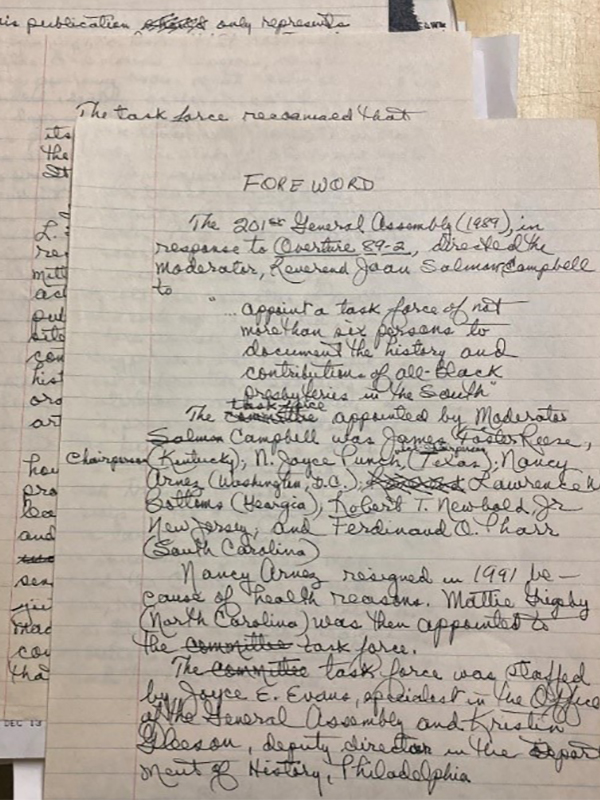 is publication only represents
The task force recognised that
its
the
St
L.
re
mitt
act
pub
site
con
hist
oro
art
how
pro
ba
and
sen
mac
cou
tha
DEC 13
FOREWORD
The 201st General Assembly (1989), in
response to Overture 89-2, directed the
Moderator, Reverend Joan Salmon Campbell
to
"... appoint a task force of not
more than six persons to
document the history and
contributions of all-Black
presbyteries in the South"
task force
The committee appointed by Moderator
Salmon Campbell was James Foster Reese,
Chairperson (Kentucky); N. Joyce Punch, (Texas); Nancy
Arnez (Washington, D.C.); Lawrence W.
Bottoms (Georgia), Robert T. Newbold, Jr
New Jersey; and Ferdinand O. Pharr
(South Carolina)
Nancy Arnez resigned in 1991 be-
cause of health reasons. Mattie Grigsby
(North Carolina) was then appointed to
the committee task force.
The committee task force was staffed
by Joyce E. Evans, specialist in the Office
of the General Assembly and Kristin
Gleeson, deputy director in the Depart
ment of History, Philadelphia